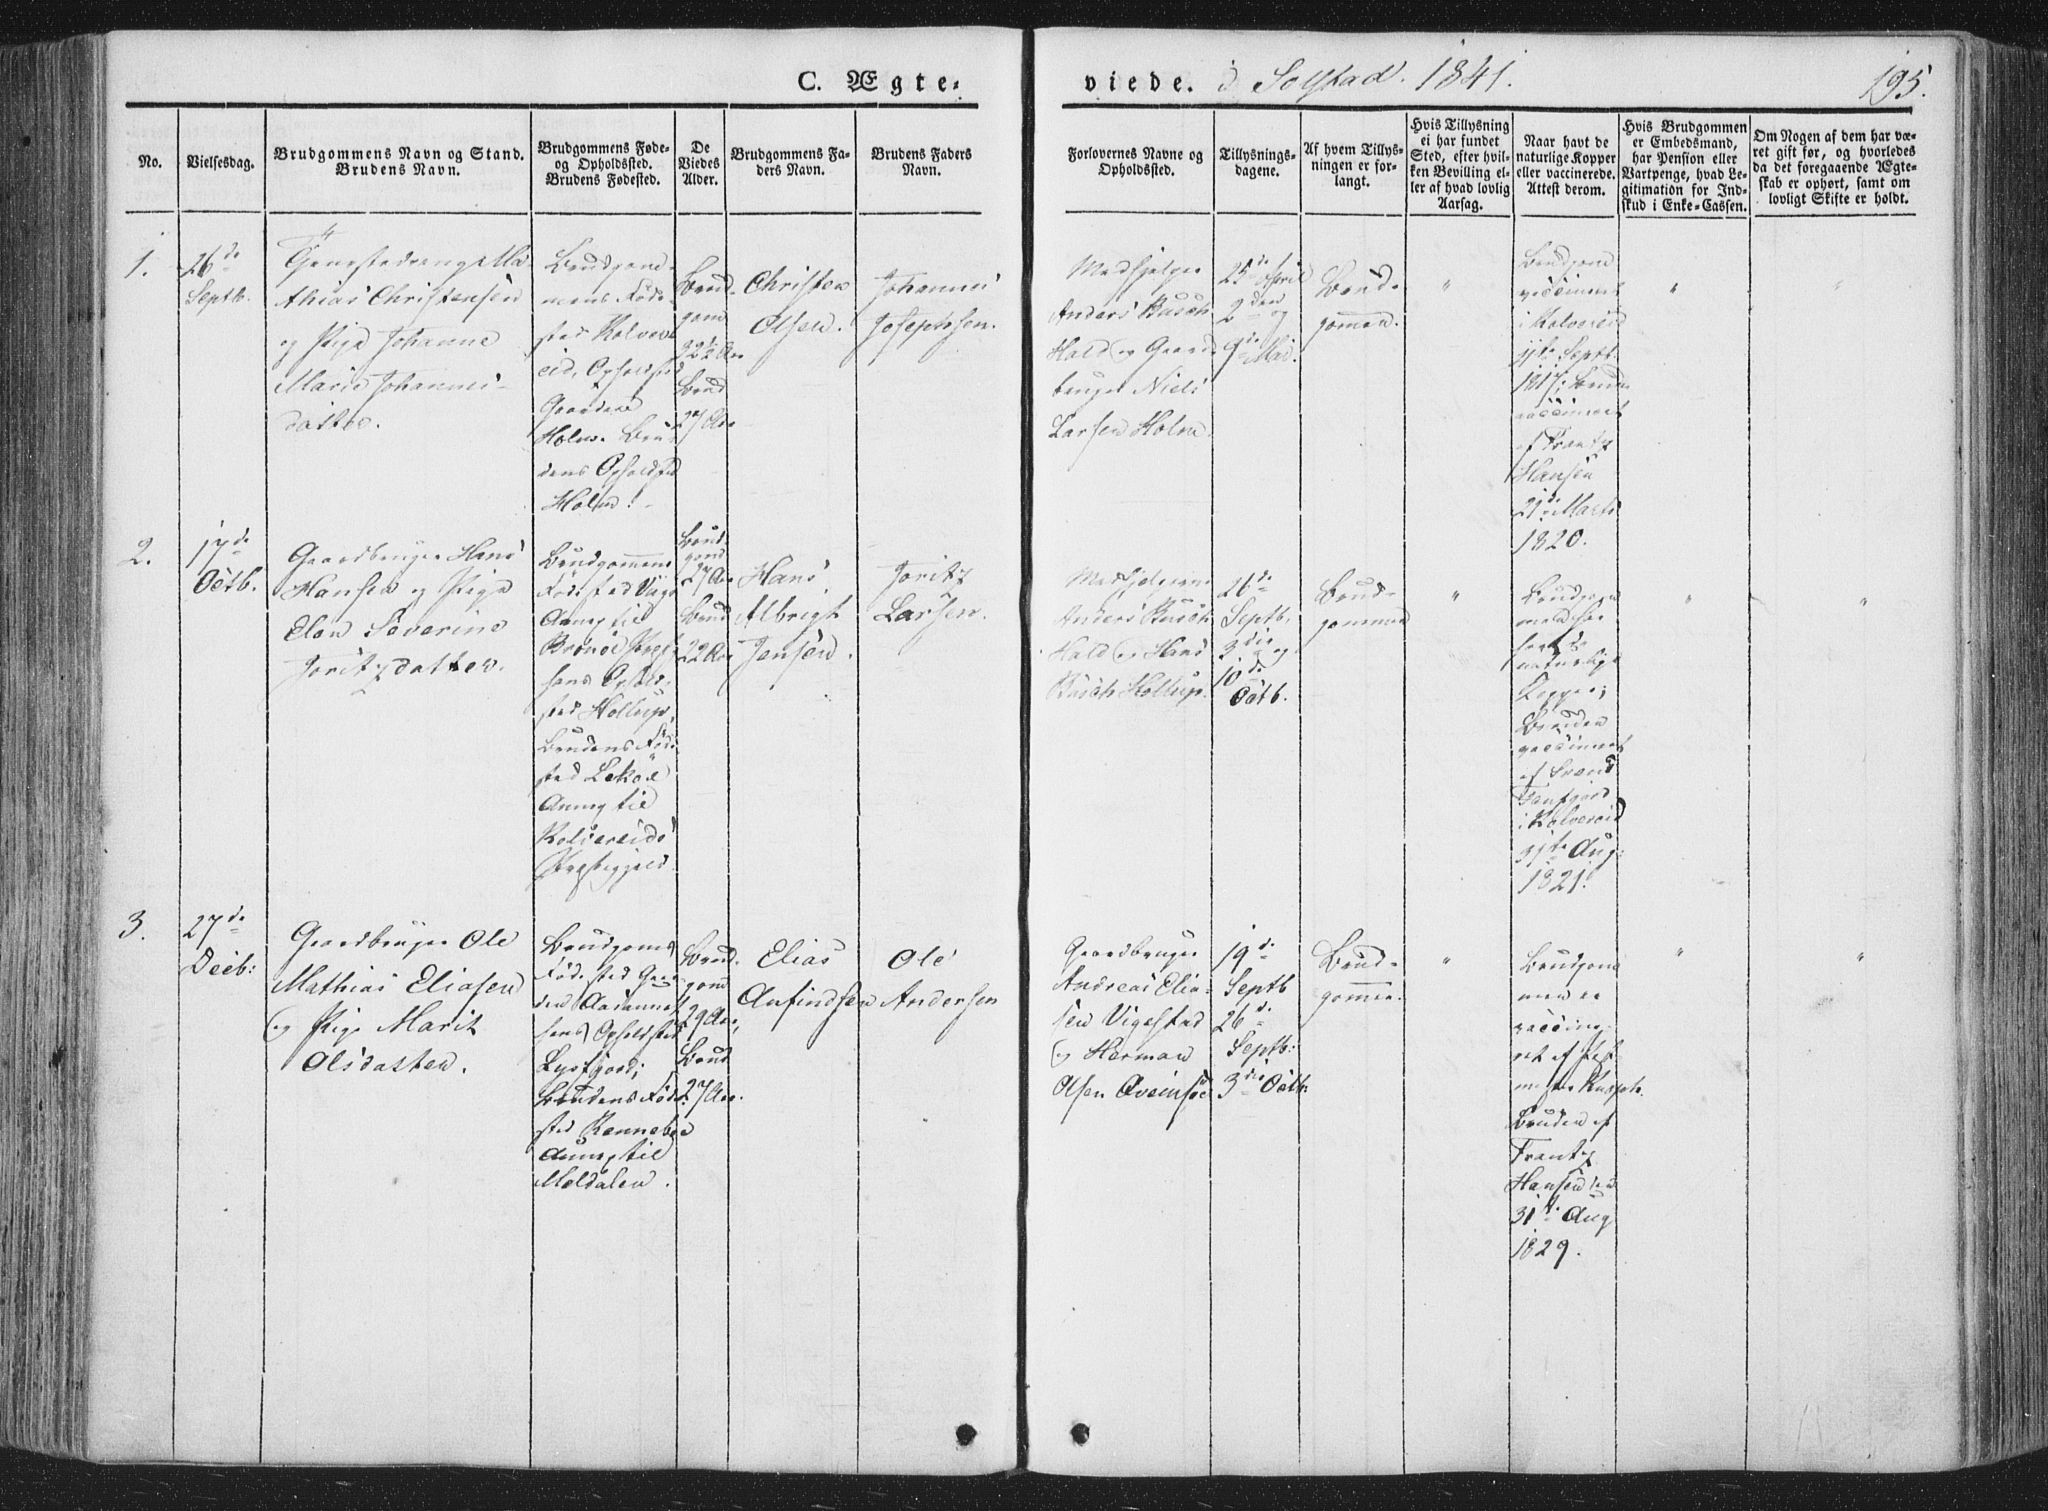 C. Ægte-
viede. i Solstad. 1841.
195.
No.
Vielsesdag.
Brudgommens Navn og Stand.
Brudens Navn.
Brudgommens Føde-
og Opholdssted.
Brudens Fødested.
De
Viedes
Alder.
Brudgommens Fa-
ders Navn.
Brudens Faders
Navn.
Forlovernes Navne og
Opholdssted.
Tillysnings-
dagene.
Af hvem Tillys-
ningen er for-
langt.
Hvis Tillysning
ei har fundet
Sted, efter hvil-
ken Bevilling el-
ler af hvad lovlig
Aarsag.
Naar havt de
naturlige Kopper
eller vaccinerede.
Attest derom.
Hvis Brudgommen
er Embedsmand,
har Pension eller
Vartpenge, hvad Le-
gitimation for Ind-
skud i Enke-Cassen.
Om Nogen af dem har væ-
ret gift før, og hvorledes
da det foregaaende Ægte-
skab er ophørt, samt om
lovligt Skifte er holdt.
1.
26de
Septb.
Ma-
thias Christensen
og Pige Johanne
Marie Johannes-
datter.
Brudgom-
mens Føde-
sted Kolver-
eid, Opholdsted
Gaarden
Holm. Bru-
dens Opholdsted
Holm.
Brud-
gom
32½ Aar
Brud
27 Aar
Christen
Olsen.
Johannes
Josephsen.
Medhjelper
Anders Busch
Hald og Gaard-
bruger Niels
Larsen Holm.
25de April
2den og
9de Mai.
Brud-
gommen.
"
Brudgom
vaccineret
i Kolvereid
11te Septb.
1817; Brud
vaccineret
af Frantz
Hansen
21de Marts
1820.
"
"
2.
17de
Octb.
Gaardbruger Hans
Hansen og Pige
Elen Severine
Joritzdatter.
Brudgommens
Fødested
Annex til
Brønøe Præst-
Ophold-
sted Hollup,
Brudens Føde-
sted Lekøe
Annex til
Kolvereids
Præstegjeld.
Brud-
gom
27 Aar
Brud
22 Aar
Hans
Albrigt
Jensen.
Joritz
Larsen.
Medhjelperne
Anders Busch
Hald og Hans
Busch Hollup.
26de
Septb,
3die og
10de
Octb.
Brud-
gommen
"
Brudgom-
men har
havt de
naturlige
Kopper;
Bruden
vaccineret
af Svend
i Kolvereid
31te Aug:
1821.
"
"
3.
27de
Decb:
Gaardbruger Ole
Mathias Eliasen
og Pige Marit
Olsdatter.
Brudgoms
Fødested Gaar-
den
Opholdsted
Lysfjord;
Brudens Føde-
sted Renneboe
Annex til
Meldalen.
Brud-
gom
29 Aar,
Brud
27 Aar.
Elias
Anfindsen
Ole
Andersen
Gaardbruger
Andreas Elia-
sen Vigestad
og Herman
Olsen
19de
Septb
26de
Septb:
3die Octb.
Brud-
gommen.
"
Brudgom-
men er
vaccine-
ret af
Bruden af
Frantz
Hansen den
31te Aug
1829.
"
"